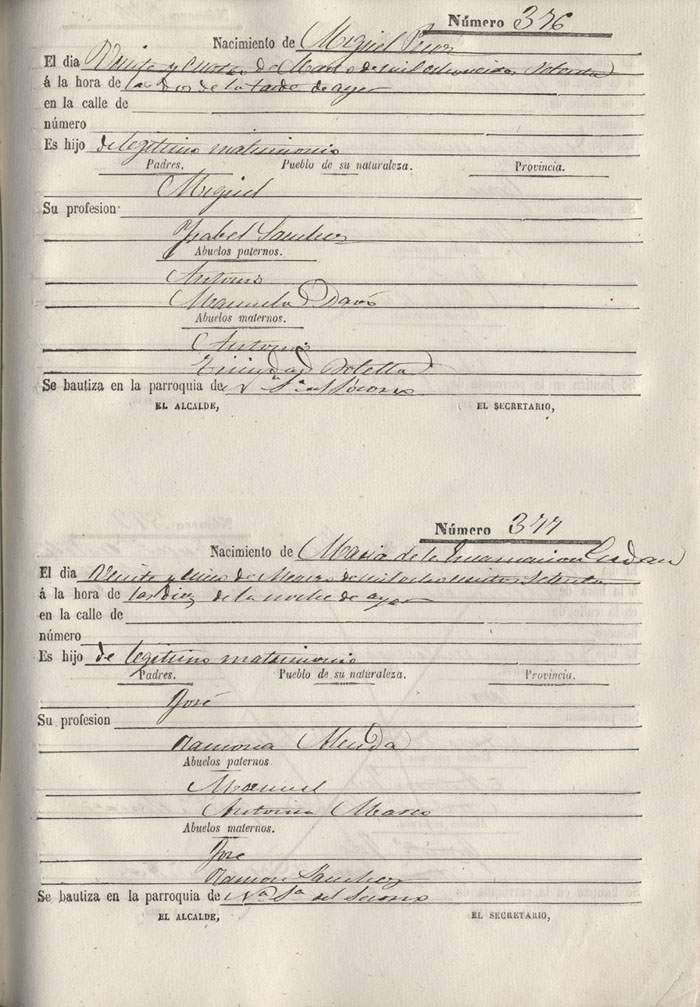 Número 376
Nacimiento de Miguel Perez
El dia Veinte y cuatro de Marzo de mil ochocientos setenta
á la hora de las dos de la tarde de ayer
en la calle de
número
Es hijo de legitimo matrimonio
Padres. Pueblo de su naturaleza. Provincia.
Miguel
Su profesion
Ysabel Sanchez
Abuelos paternos.
Antonio
Manuela
Abuelos maternos.
Antonio
Trinidad
Se bautiza en la parroquia de Nª Sª del Socorro
EL ALCALDE, EL SECRETARIO,
Número 377
Nacimiento de Maria de la Encarnacion
El dia Veinte y cinco de Marzo de mil ochocientos setenta
á la hora de las diez de la noche de ayer
en la calle de
número
Es hijo de legitimo matrimonio
Padres. Pueblo de su naturaleza. Provincia.
José
Su profesion
Ramona
Abuelos paternos
Manuel
Antonia
Abuelos maternos.
José
Ramona Sanchez
Se bautiza en la parroquia de Nª Sª del Socorro
EL ALCALDE, EL SECRETARIO,